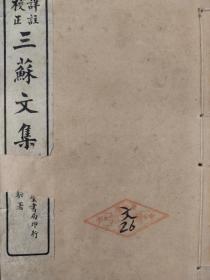 詳註
校正
三蘇文集
書局印行
文
26